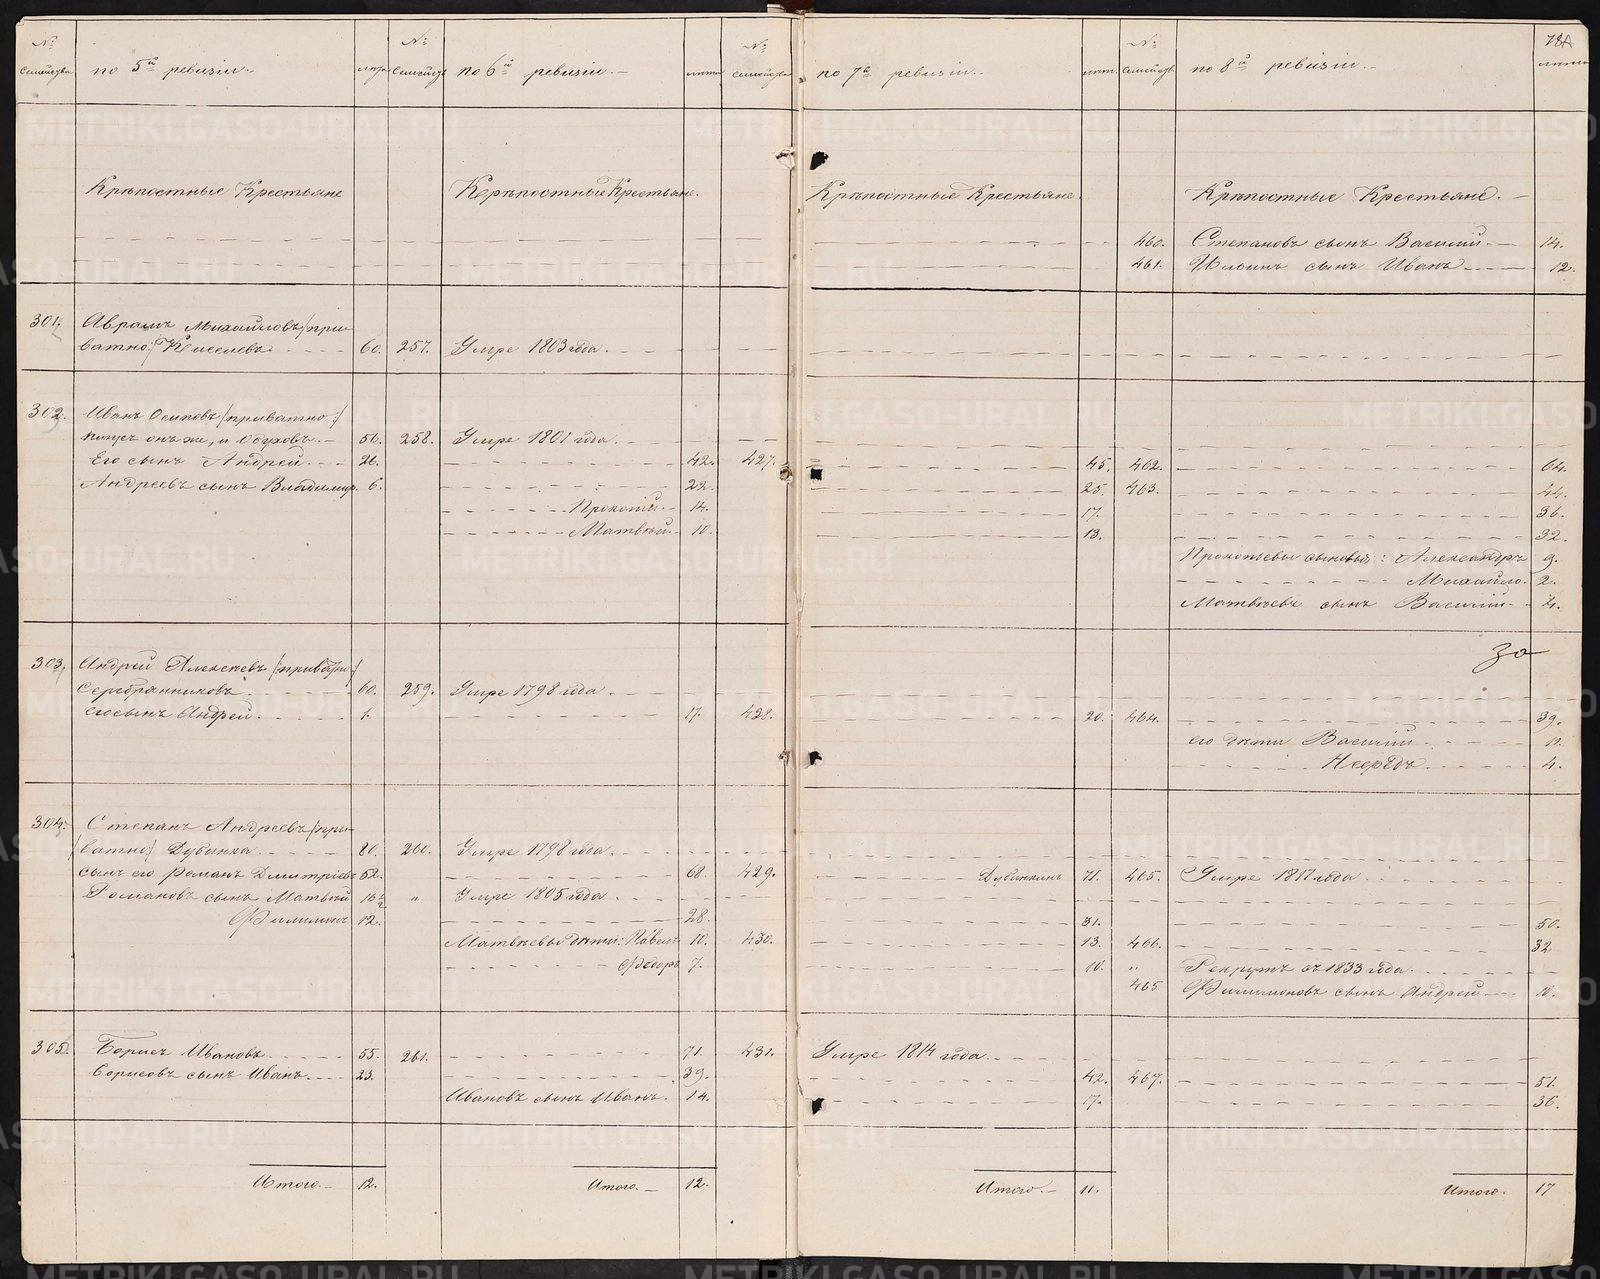 78
№ семейства по 5й ревизіи. лѣта № семейств по 6й ревизіи. лѣта № семейства по 7й ревизіи. лѣта № семейств по 8й ревизіи. лѣта
Крѣпостные Крестьяне Крѣпостные Крестьяне. Крѣпостные Крестьяне. Крѣпостные Крестьяне.
460. Степановъ сынъ Василій 14.
461. Ильинъ сынъ Иванъ 12.
301. Аврамъ Михайловъ /при-
ватно:/ Киселевъ 60. 257. Умре 1803 года.
302. Иванъ Осиповъ /приватно:/
онъ же, и Обуховъ. 50. 258. Умре 1801 года.
Его сынъ Андрей. 26. 42. 427. 45. 462. 64.
Андреевъ сынъ Владимир. 6. 22. 25. 463. 44.
Прокопій 14. 17. 36.
Матвѣй 10. 13. 32.
Прокопьевы сыновья: Александръ 9.
Михайло. 2.
Матвѣевъ сынъ Василій 4.
303. Андрей Алексѣевъ /приватно:/
Серебрянниковъ. 60. 259. Умре 1798 года
его сынъ Андрей. 1. 17. 428. 20. 464. 39.
его дѣти Василій 11.
4.
304. Степанъ Андреевъ /при-
ватно/ Дубинка 80. 260. Умре 1798 года.
сынъ его Романъ Дмитріевъ 52. 68. 429. Дубинкинъ 71. 465. Умре 1817 года
Романовъ сынъ Матвѣй 16½ " Умре 1805 года
Филимонъ 12. 28. 31. 50.
Матвѣевы дѣти: Павелъ 10. 430. 13. 466. 32
Федоръ 7. 10. " Рекрутъ съ 1833 года.
465 Филимоновъ сынъ Андрей 10.
305. Борисъ Ивановъ. 55. 261. 71. 431. Умре 1814 года.
Борисовъ сынъ Иванъ. 23. 39. 42. 467. 51.
Ивановъ сынъ Иванъ. 14. 17. 36.
Итого. 12. Итого. 12. Итого. 11. Итого. 17
METRIKI.GASO-URAL.RU